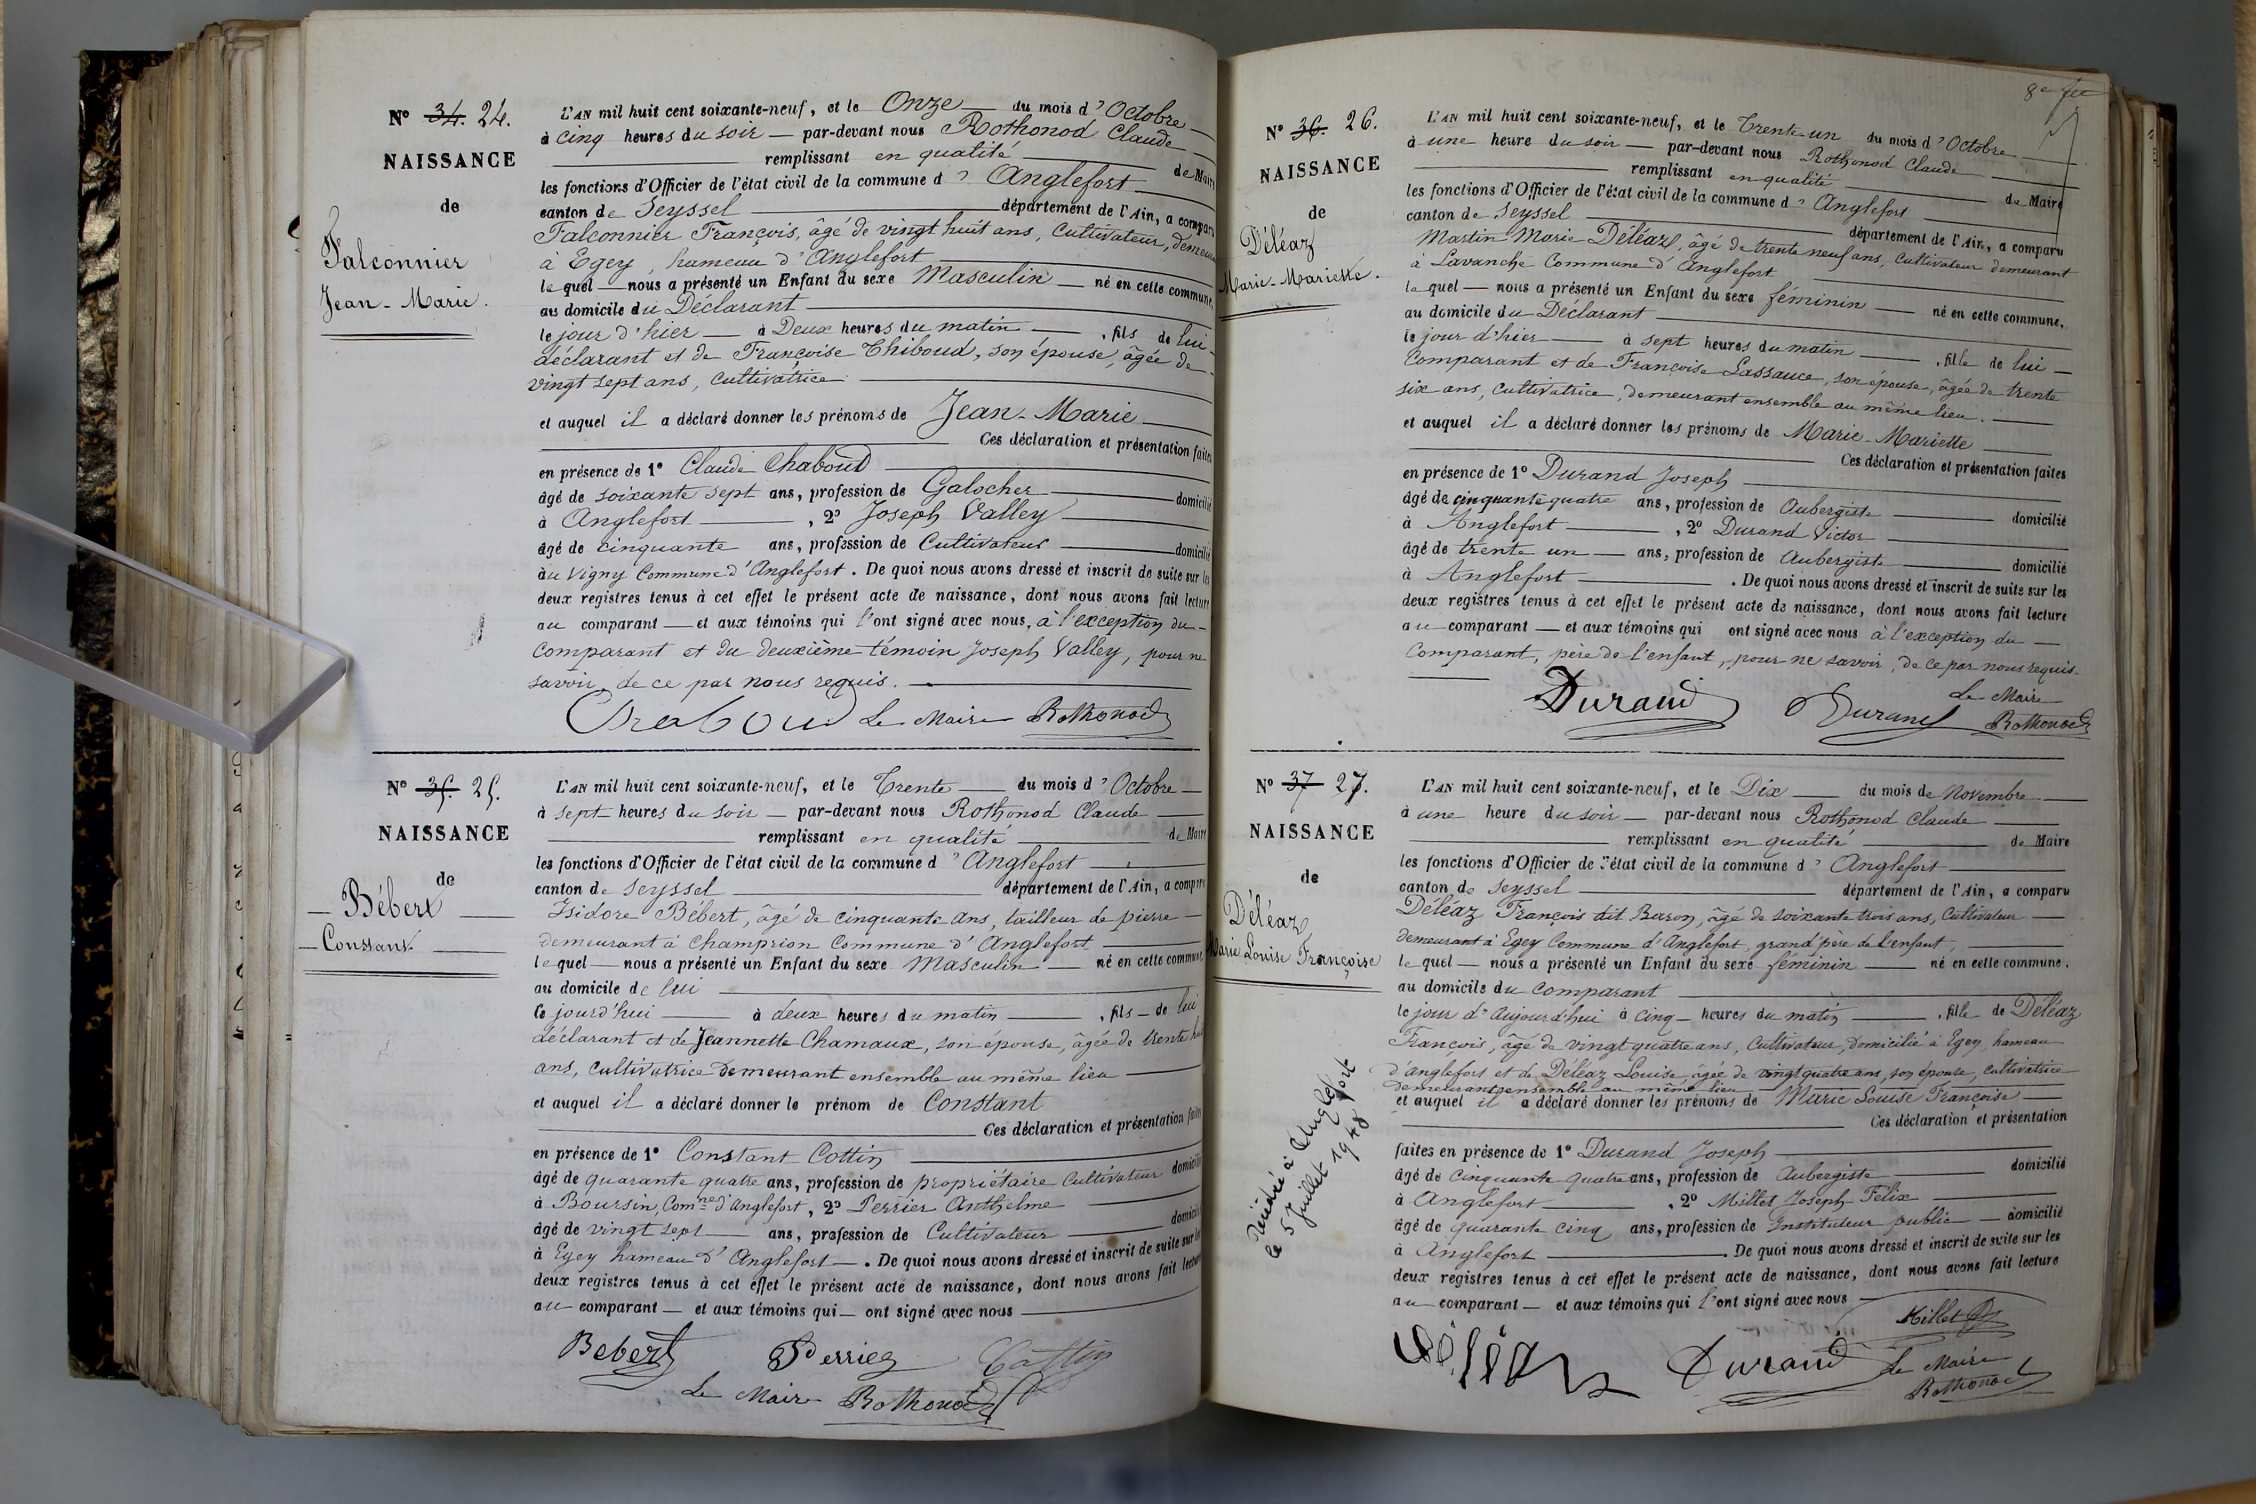 Nº 34. 24.
NAISSANCE
de
Falconnier
Jean-Marie.
L'AN mil huit cent soixante-neuf, et le Onze du mois d'Octobre
à cinq heures du soir par-devant nous Rothonod Claude
remplissant en qualité de Maire
les fonctions d'Officier de l'état civil de la commune d'Anglefort
canton de Seyssel département de l'Ain, a comparu
Falconnier François, âgé de vingt huit ans, Cultivateur, demeurant
à Egey, hameau d'Anglefort
lequel nous a présenté un Enfant du sexe Masculin né en cette commune,
au domicile du Déclarant
le jour d'hier à Deux heures du matin, fils de lui
déclarant et de Françoise Thiboud, son épouse, âgée de
vingt sept ans, cultivatrice
et auquel il a déclaré donner les prénoms de Jean-Marie
Ces déclaration et présentation faites
en présence de 1º Claude Chaboud
âgé de soixante sept ans, profession de Galocher domicilié
à Anglefort, 2º Joseph Valley
âgé de cinquante ans, profession de Cultivateur domicilié
au Vigny Commune d'Anglefort. De quoi nous avons dressé et inscrit de suite sur les
deux registres tenus à cet effet le présent acte de naissance, dont nous avons fait lecture
au comparant et aux témoins qui l'ont signé avec nous, à l'exception du
comparant et du deuxième témoin Joseph Valley, pour ne
savoir, de ce par nous requis.
Chaboud Le Maire Rothonod
Nº 35. 25.
NAISSANCE
de
Bébert
Constant.
L'AN mil huit cent soixante-neuf, et le Trente du mois d'Octobre
à sept heures du soir par-devant nous Rothonod Claude
remplissant en qualité de Maire
les fonctions d'Officier de l'état civil de la commune d'Anglefort
canton de Seyssel département de l'Ain, a comparu
Isidore Bébert, âgé de cinquante ans, tailleur de pierre
demeurant à Champrion Commune d'Anglefort
lequel nous a présenté un Enfant du sexe Masculin né en cette commune,
au domicile de lui
ce jourd'hui à deux heures du matin, fils de lui
déclarant et de Jeannette Chamaux, son épouse, âgée de trente huit
ans, cultivatrice demeurant ensemble au même lieu
et auquel il a déclaré donner le prénom de Constant
Ces déclaration et présentation faites
en présence de 1º Constant Cottin
âgé de quarante quatre ans, profession de propriétaire Cultivateur domicilié
à Boursin, Comne d'Anglefort, 2º Perrier Anthelme
âgé de vingt sept ans, profession de Cultivateur domicilié
à Egey hameau d'Anglefort. De quoi nous avons dressé et inscrit de suite sur les
deux registres tenus à cet effet le présent acte de naissance, dont nous avons fait lecture
au comparant et aux témoins qui ont signé avec nous
Bebert Perrier Cottin
Le Maire Rothonod
Nº 36. 26.
NAISSANCE
de
Déléaz
Marie-Mariette.
L'AN mil huit cent soixante-neuf, et le Trente-un du mois d'Octobre
à une heure du soir par-devant nous Rothonod Claude
remplissant en qualité de Maire
les fonctions d'Officier de l'état civil de la commune d'Anglefort
canton de Seyssel département de l'Ain, a comparu
Martin Marie Déléaz, âgé de trente neuf ans, cultivateur demeurant
à Lavanche Commune d'Anglefort
lequel nous a présenté un Enfant du sexe féminin né en cette commune,
au domicile du Déclarant
le jour d'hier à sept heures du matin, fille de lui
Comparant et de Françoise Lassauce, son épouse, âgée de trente
six ans, cultivatrice, demeurant ensemble au même lieu.
et auquel il a déclaré donner les prénoms de Marie-Mariette
Ces déclaration et présentation faites
en présence de 1º Durand Joseph
âgé de cinquante quatre ans, profession de Aubergiste domicilié
à Anglefort, 2º Durand Victor
âgé de trente un ans, profession de Aubergiste domicilié
à Anglefort. De quoi nous avons dressé et inscrit de suite sur les
deux registres tenus à cet effet le présent acte de naissance, dont nous avons fait lecture
au comparant et aux témoins qui ont signé avec nous à l'exception du
Comparant, père de l'enfant, pour ne savoir, de ce par nous requis.
Durand Durand Le Maire
Rothonod
Nº 37 27.
NAISSANCE
de
Déléaz
Marie Louise Françoise
L'AN mil huit cent soixante-neuf, et le Dix du mois de Novembre
à une heure du soir par-devant nous Rothonod Claude
remplissant en qualité de Maire
les fonctions d'Officier de l'état civil de la commune d'Anglefort
canton de Seyssel département de l'Ain, a comparu
Déléaz François dit Baron, âgé de soixante trois ans, Cultivateur
demeurant à Egey Commune d'Anglefort, grand père de l'enfant,
lequel nous a présenté un Enfant du sexe féminin né en cette commune.
au domicile du Comparant
le jour d'aujourd'hui à cinq heures du matin, fille de Déléaz
François, âgé de vingt quatre ans, Cultivateur, domicilié à Egey, hameau
d'anglefort et de Déléaz Louise, âgée de vingt quatre ans, son épouse, cultivatrice
demeurant ensemble au même lieu
et auquel il a déclaré donner les prénoms de Marie Louise Françoise
Ces déclaration et présentation
faites en présence de 1º Durand Joseph
âgé de cinquante quatre ans, profession de Aubergiste domicilié
à Anglefort, 2º Millet Joseph Félix
âgé de quarante cinq ans, profession de Instituteur public domicilié
à Anglefort. De quoi nous avons dressé et inscrit de suite sur les
deux registres tenus à cet effet le présent acte de naissance, dont nous avons fait lecture
au comparant et aux témoins qui l'ont signé avec nous
Millet
Déléaz Durand Le Maire
Rothonod
Décédée à Anglefort
le 5 Juillet 1948